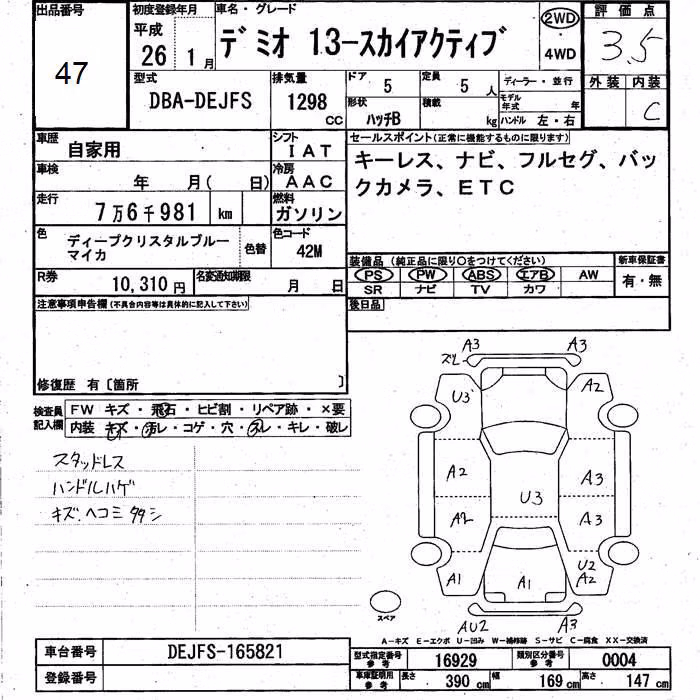 出品番号
47
初度登録年月
平成
26 1月
車名・グレード
デミオ 13-スカイアクティブ
2WD
・
4WD
評価点
3.5
外装 内装
C
型式
DBA-DEJFS
排気量
1298 CC
ドア 5
定員 5人
形状 ハッチB
積載 kg
ディーラー・並行
モデル年式 年
ハンドル 左・右
車歴 自家用
シフト IAT
車検 年 月( 日)
冷房 AAC
走行 7万6千981 km
燃料 ガソリン
色 ディープクリスタルブルー
マイカ
色替
色コード 42M
R券 10,310円
名変通知期限 月 日
セールスポイント(正常に機能するものに限ります)
キーレス、ナビ、フルセグ、バッ
クカメラ、ETC
装備品(純正品に限り○をつけてください)
新車保証書
有・無
PS PW ABS エアB AW
SR ナビ TV カワ
後日品
注意事項申告欄(不具合内容等は具体的に記入して下さい)
修復歴 有〔箇所 〕
検査員
記入欄
FW キズ・飛石・ヒビ割・リペア跡・×要
内装 キズ・汚レ・コゲ・穴・スレ・キレ・破レ
スタッドレス
ハンドルハゲ
キズ.ヘコミ タタシ
A3 A3
ズレ
U3 A2
A2 A3
U3
A2 A3
U2
A1 A1 A2
AU2 A3
スペア
A-キズ E-エクボ U-凹み W-補修跡 S-サビ C-腐食 XX-交換済
車台番号 DEJFS-165821
登録番号
型式指定番号
参考
16929
類別区分番号
参考
0004
車庫証明用
参考
長さ 390 cm
幅 169 cm
高さ 147 cm